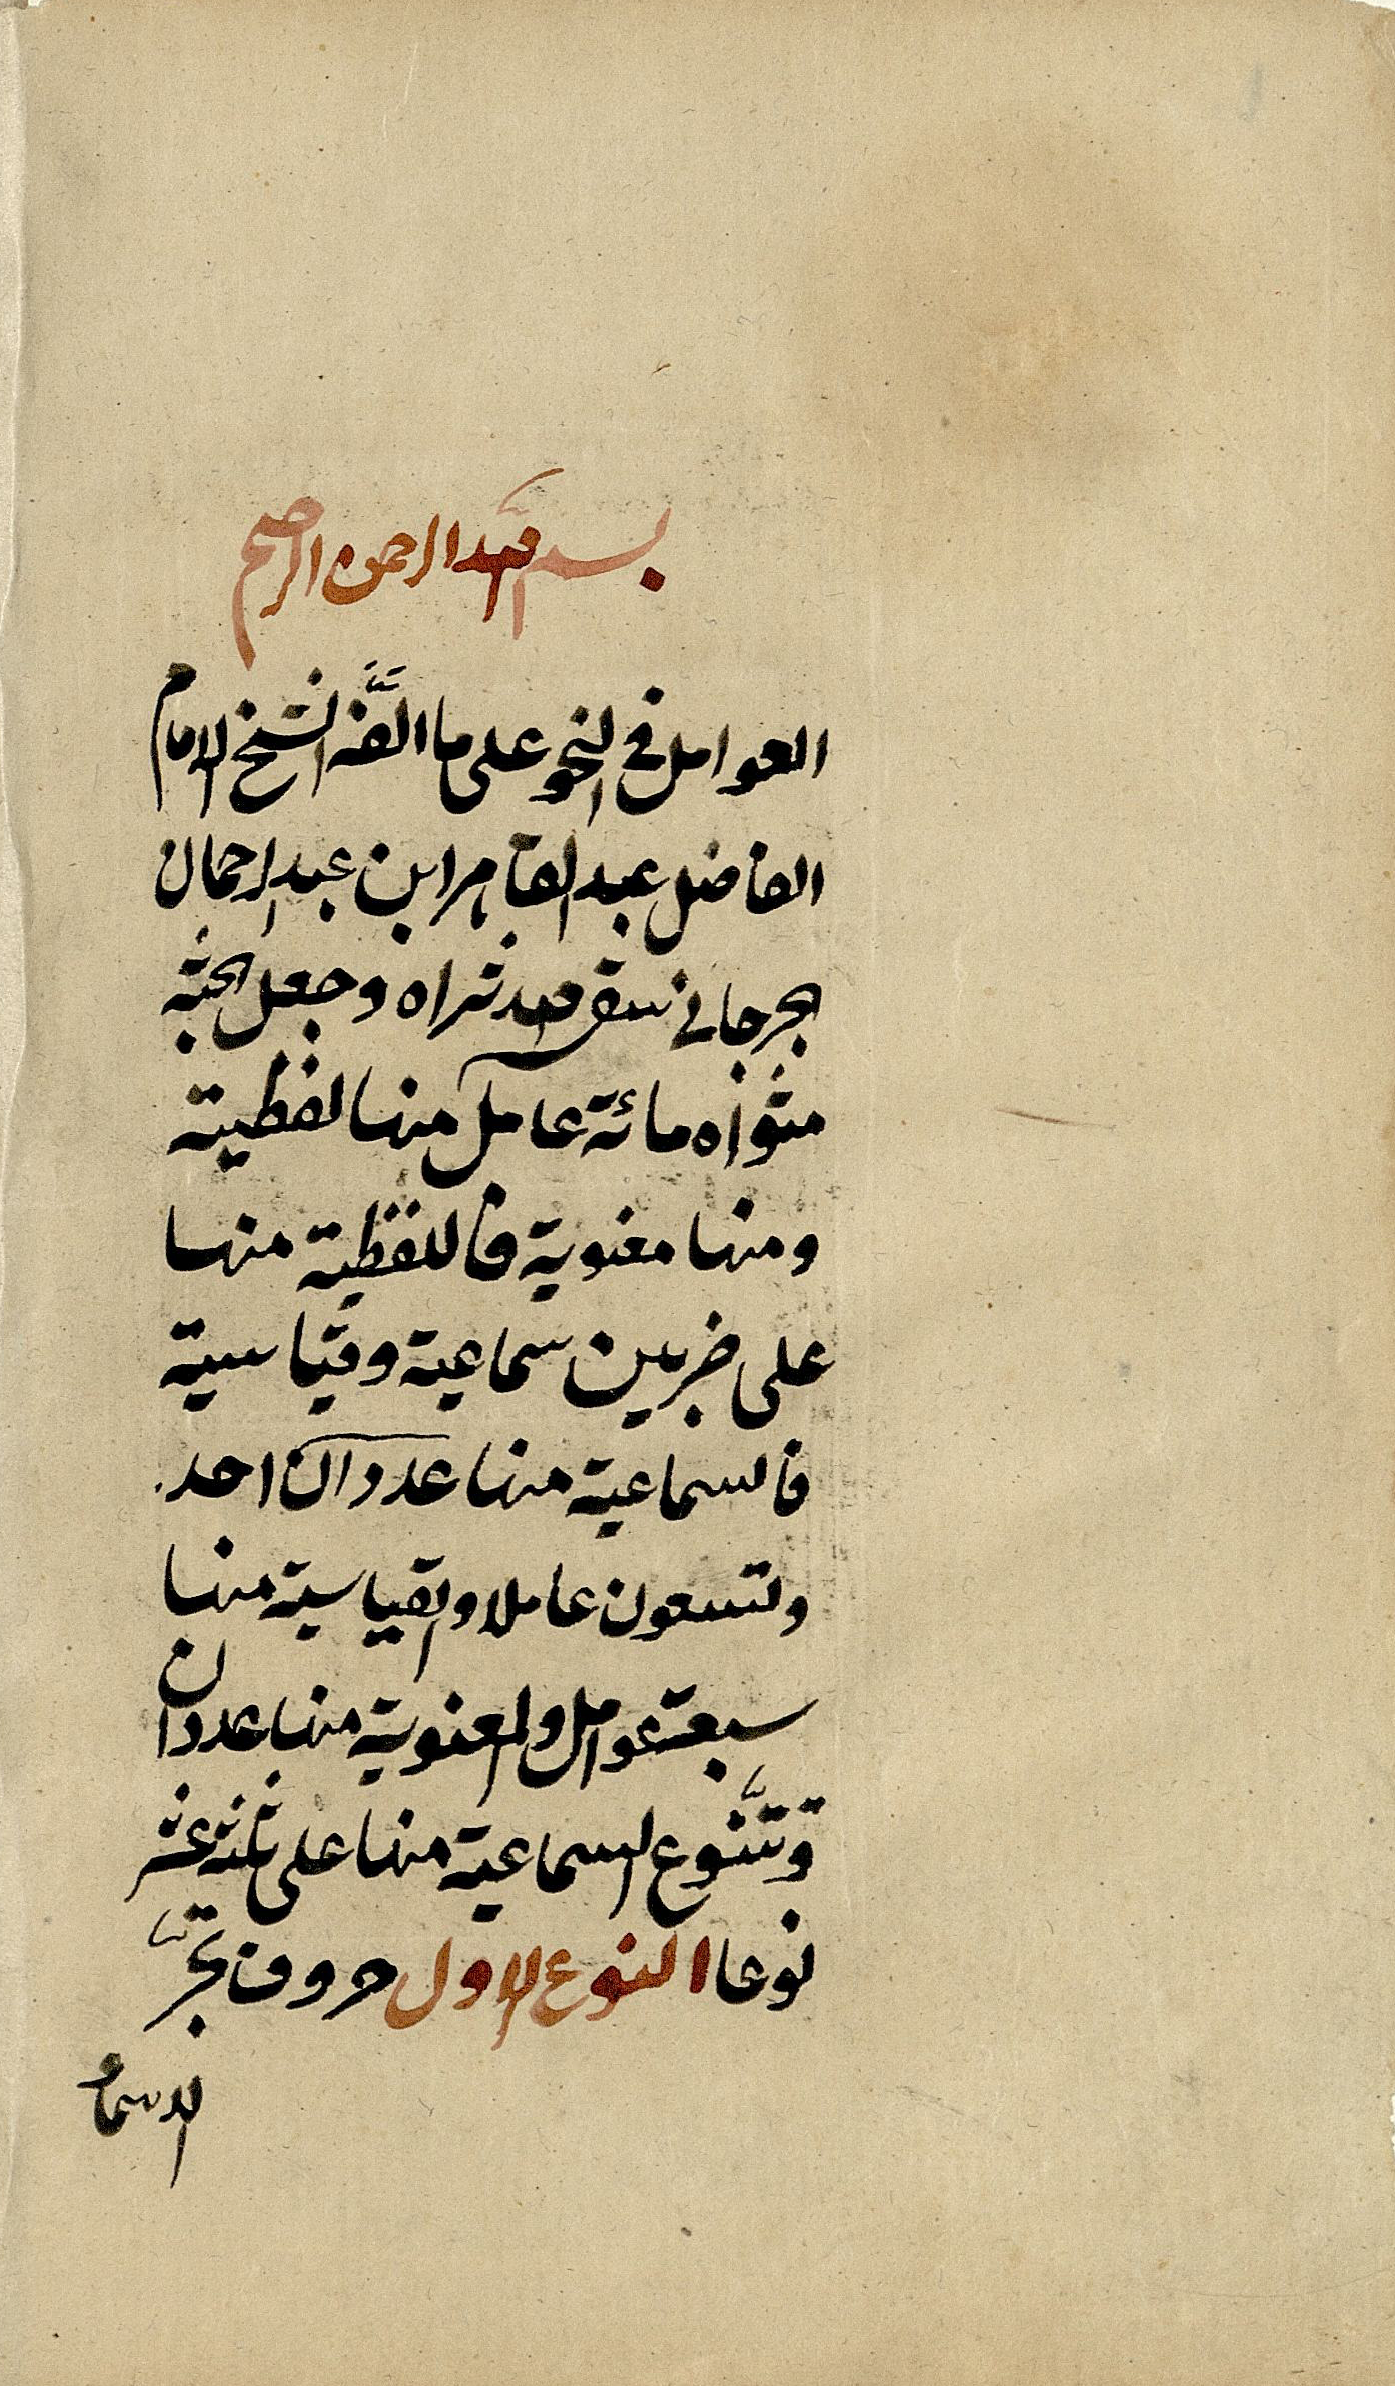 بسم الله الرحمن الرحيم
العوامل في النحو على ما الَّفه الشيخ الامام
الفاضل عبد القاهر ابن عبد الرحمان
الجرجاني سقى الله ثراه وجعل الجنة
مثواه مائة عامل منها لفظية
ومنها معنوية فاللفظية منها
على ضربين سماعية وقياسية
فالسماعية منها عددان احد
وتسعون عاملا والقياسية منها
سبعة عوامل والمعنوية منها عددان
وتتنَّوع السماعية منها على ثلثة عشر
نوعا النوع الاول حروف تجرّ
الاسماء